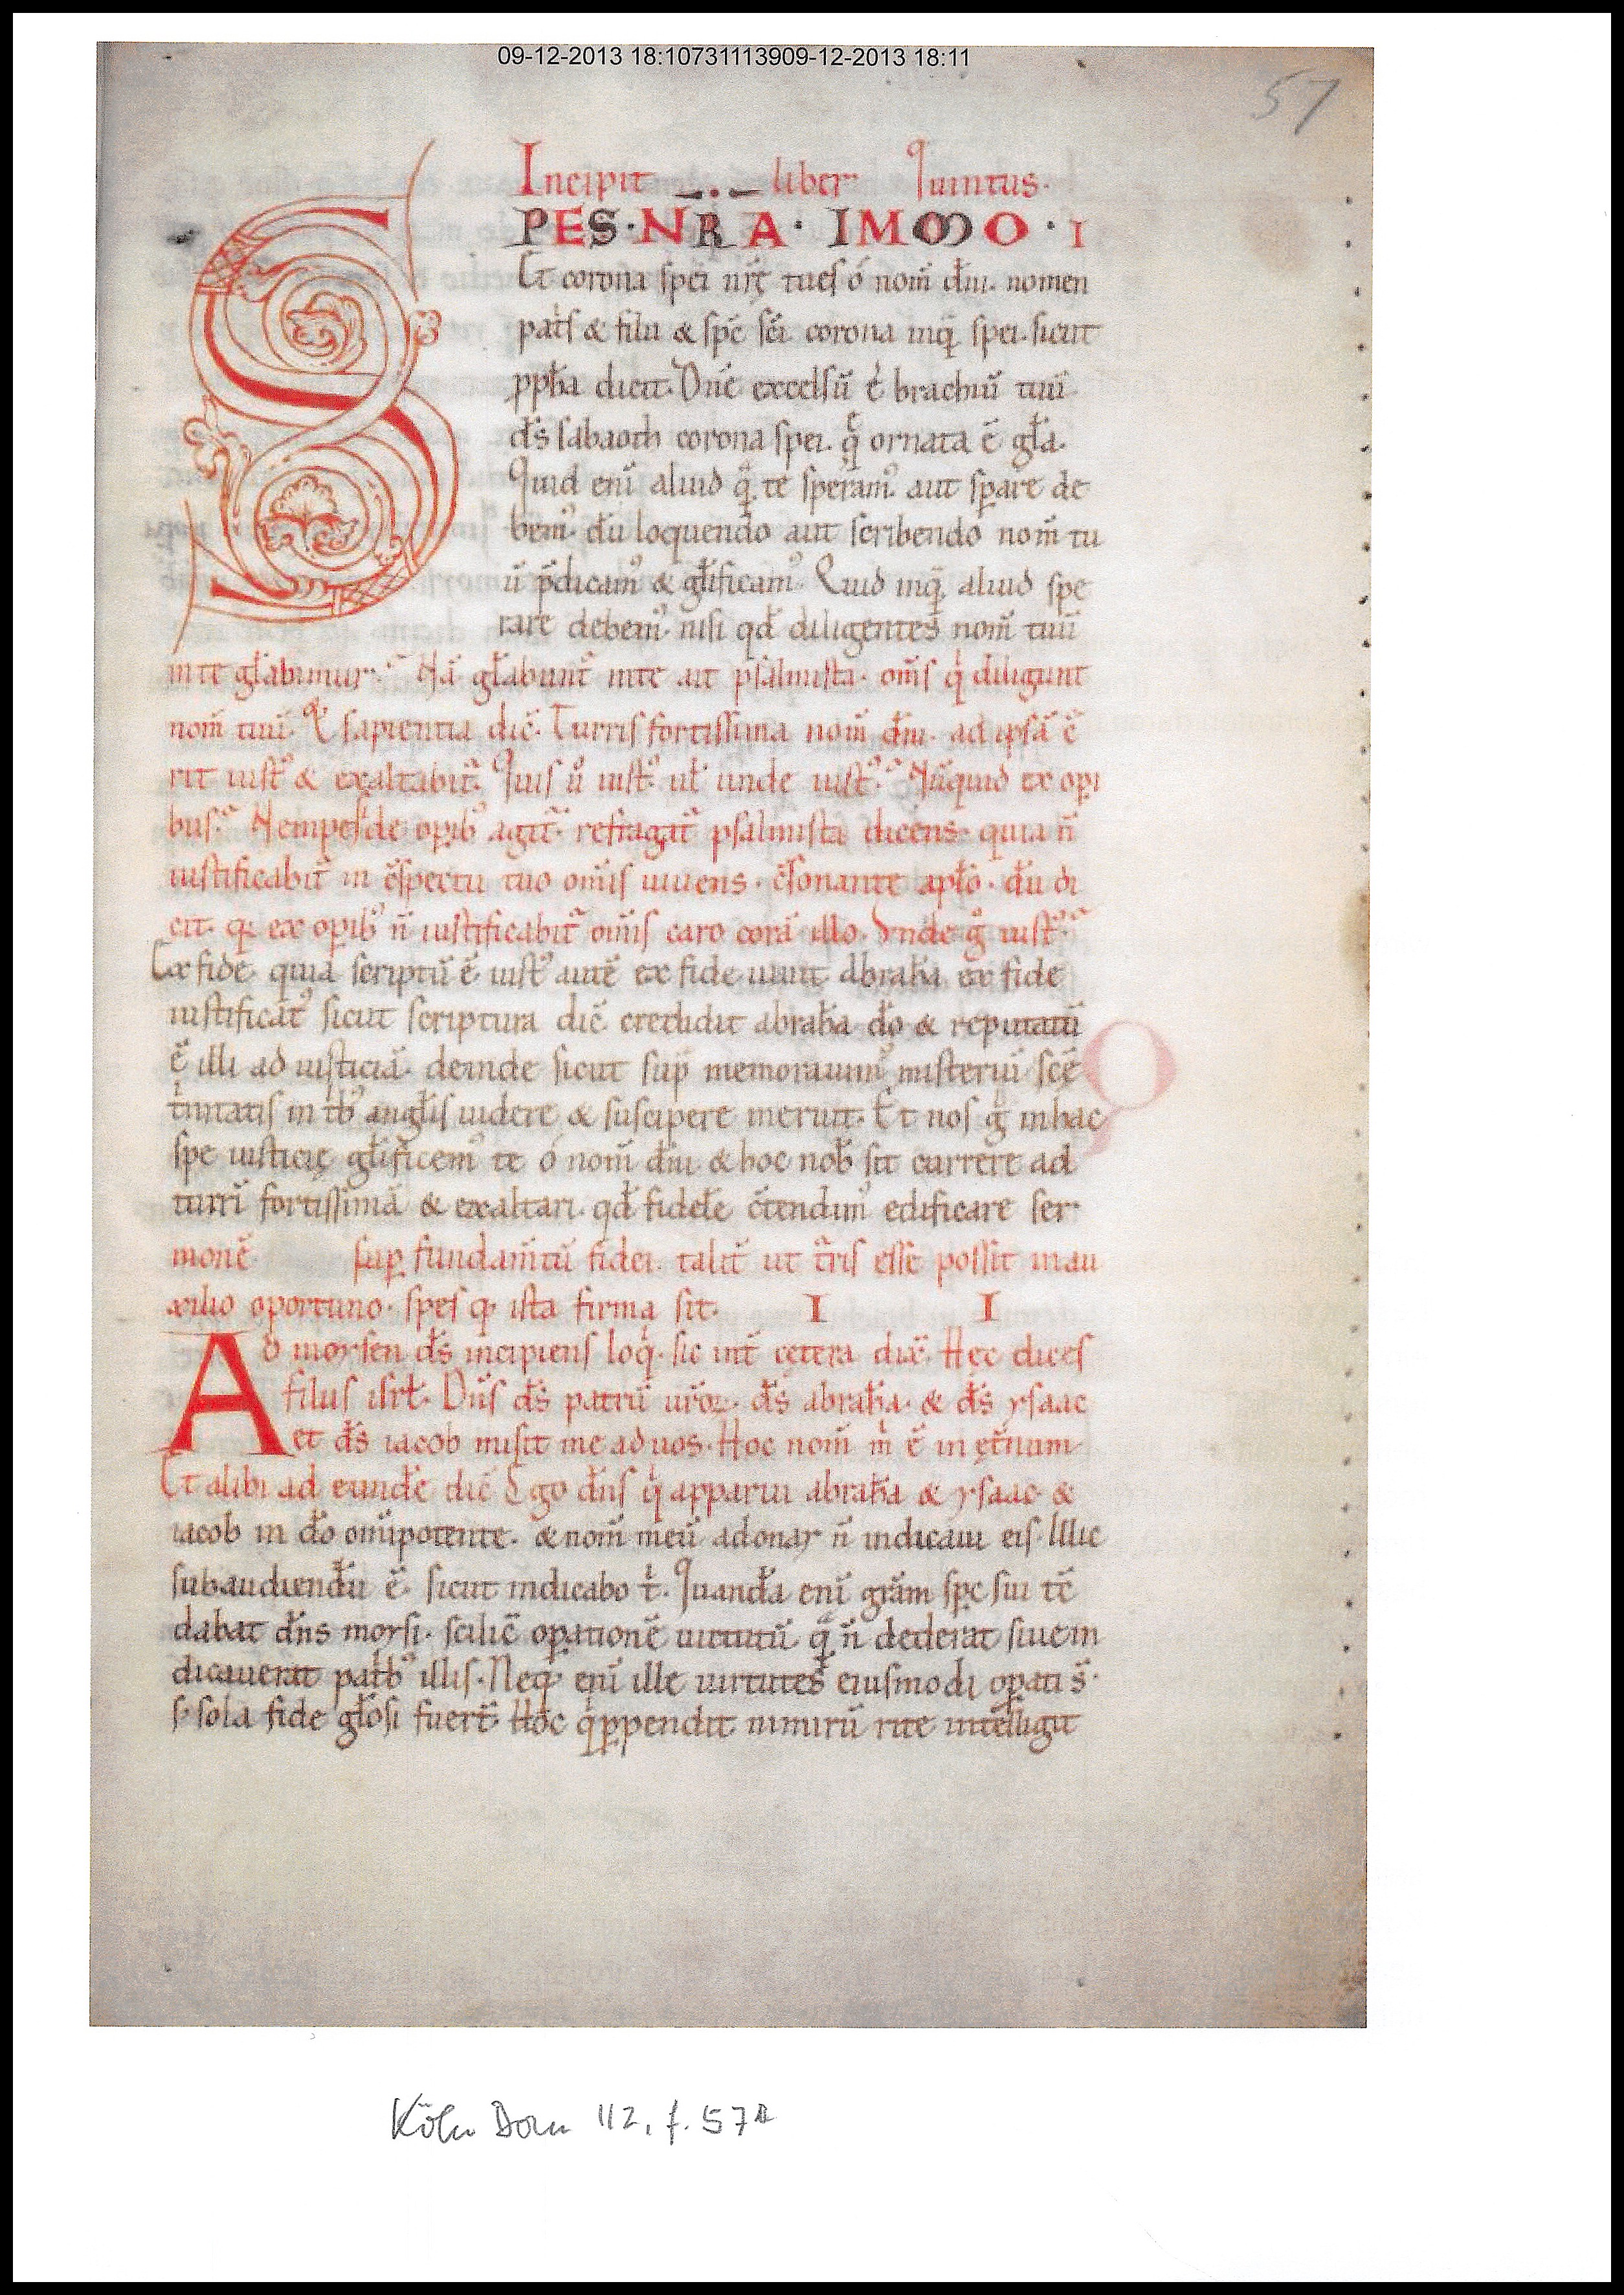 09-12-2013 18:10731113909-12-2013 18:11
57
Incipit liber Quintus.
SPES · NR̄A · IMMO · I
Et corona spei nr̄ę tu es ó nom̄ dn̄i. nomen
pat̄s & filii & sp̄c sc̄i. corona inq̄. spei. sicut
ppħa dicit. Dn̄e excelsū ē brachiū tuū
d̄s sabaoth corona spei. q̄ ornata ē gl̄a.
Quid enī aliud q̄. te speram᷒. aut sꝑare de
bem᷒. dū loquendo aut scribendo nom̄ tu
ū p̄dicam᷒ & gl̄ificam᷒. Quid inq̄. aliud spe
rare debem᷒. nisi qđ diligentes nom̄ tuū
in te gl̄abimur. Nā gl̄abunt᷑ in te ait psalmista. om̄s q̇ diligunt
nom̄ tuū. & sapientia dic̄. Turris fortissima nom̄ dn̄i. ad ipsā c̄
rit iust᷒ & exaltabit᷑. Quis ů iust᷒. ul̄ unde iust᷒. Nūquid ex oꝑi
bus. Nempe si de oꝑib᷒ agit᷑. refragat᷑ psalmista dicens. quia n̄
iustificabit᷑ in c̄spectu tuo om̄is uiuens. c̄sonante apl̄o. dū di
cit. q ex oꝑib᷒ n̄ iustificabit᷑ om̄is caro corā illo. Unde g̊ iust᷒.
Ex fide. quia scriptū ē. iust᷒ autē ex fide uiuit. abrahā ex fide
iustificat᷒ sicut scriptura dic̄. credidit abrahā dō & reputatū
ē illi ad iusticiā. deinde sicut sup̄ memorauim᷒ misteriū sc̄ę
t̊nitatis in tb᷒ angl̄is uidere & suscipere meruit. Et nos g̊ in hac
spe iusticię gl̄ificem᷒ te ó nom̄ dn̄i. & hoc nob̄ sit currere ad
turrī fortissimā & exaltari. qđ fidelē c̄tendim᷒ edificare ser
monē. suꝑ fundam̄tū fidei. talit᷑ ut t᷑ris esse possit in au
xilio oportuno. spes q ista firma sit. I I
Ad moysen d̄s incipiens loq̇. sic int᷑ cętera dix̄. Hęc dices
filiis isrl̄. Dn̄s d̄s patrū ur̄oꝝ. d̄s abrahā. & d̄s ysaac
et d̄s iacob misit me ad uos. Hoc nom̄ m̊ ē in ęt᷑num
Et alibi ad eundē dic̄. Ego dn̄s q̇ apparui abrahā & ysaac &
iacob in dō om̄ipotente. & nom̄ meū adonay n̄ indicaui eis. Illic
subaudiendū ē. sicut indicabo t̊. Quandā enī grām sp̄c sui tc̄
dabat dn̄s moysi. scilic̄ oꝑationē uirtutū. q̄ n̄ dederat siue in
dicauerat patb᷒ illis. Neq; enī ille uirtutes eiusmodi oꝑati s̄.
s; sola fide gl̄osi fuer̄. Hoc q̇ ꝑpendit nimirū rite intelligit
Köln Dom 112, f. 57r